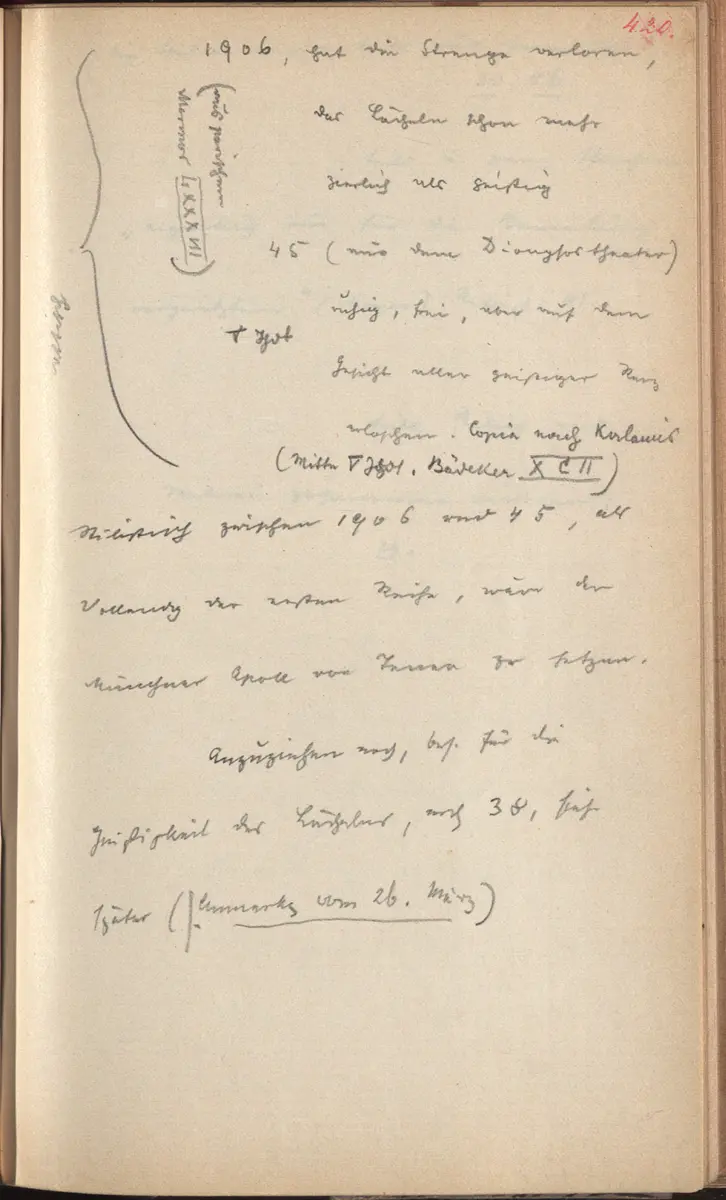 420.
1906, hat die Strenge verloren,
das Lächeln schon mehr
zierlich als geistig
(aus parischem
Marmor LXXXVII)
45 (aus dem Dionysostheater)
ruhig, frei, aber auf dem
V Jhdt
Gesicht aller geistiger Reiz
erloschen. Copie nach Kalamis
(Mitte V Jhdt. Bädeker XCII)
Stilistisch zwischen 1906 und 45, als
Vollendg der ersten Reihe, wäre der
Münchner Apoll von Tenea zu setzen.
Anzuziehen noch, bes. für die
Geistigkeit des Lächelns, noch 38, siehe
später (Anmerkg vom 26. März)